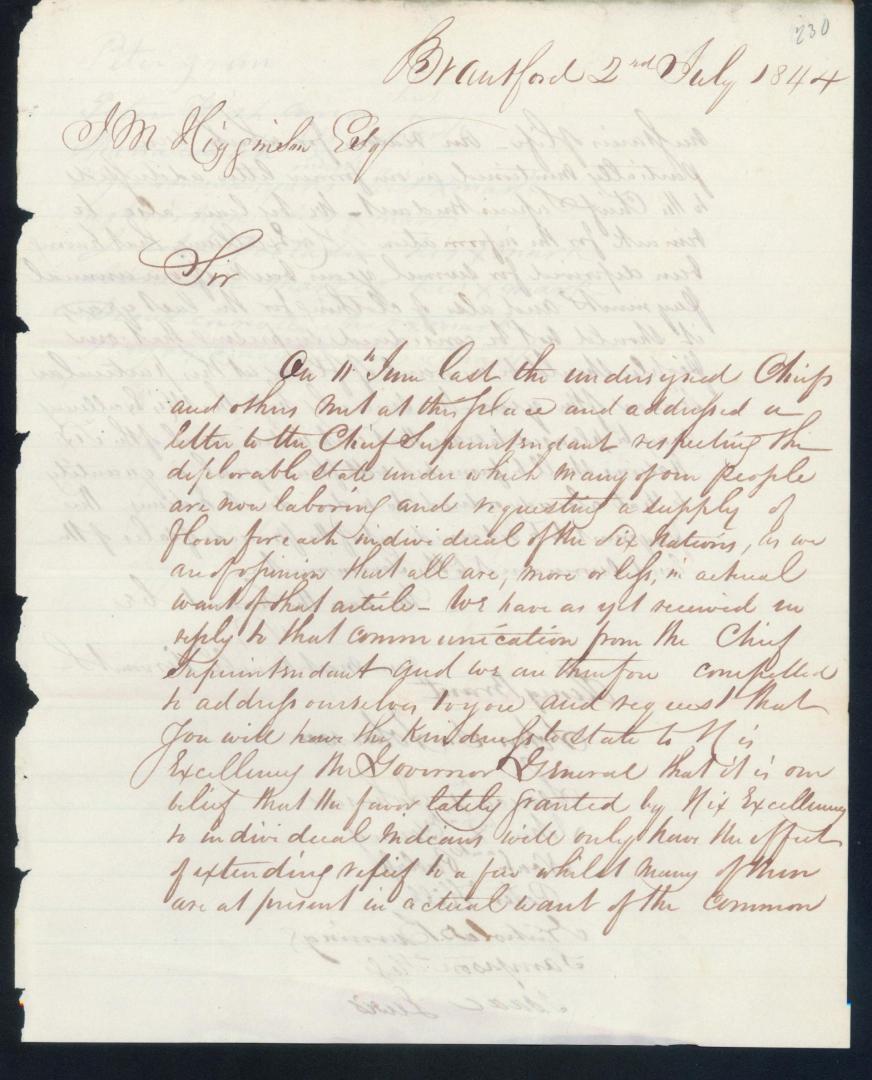 230
Brantford 2nd July 1844
J M Higginson Esq
Sir
On 11th June last the undersigned Chiefs
and others met at this place and addressed a
letter to the Chief Superintendant respecting the
deplorable state under which many of our people
are now laboring and requesting a supply of
flour for each individual of the Six Nations, as we
are of opinion that all are, more or less, in actual
want of that article - We have as yet received no
reply to that communication from the Chief
Superintendant and we are therefore compelled
to address ourselves to you and request that
you will have the kindness to state to His
Excellency the Governor General that it is our
belief that the favor lately granted by His Excellency
to individual Indeans will only have the effect
of extending relief to a few whilst many of them
are at present in actual want of the common